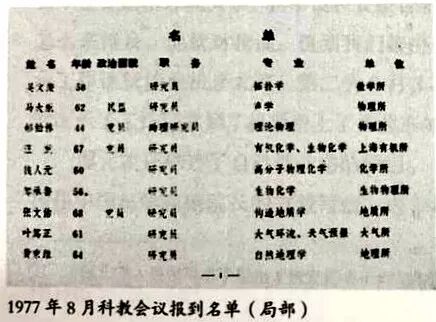 名 单
姓名 年龄 政治面貌 职务 专业 单位
吴文俊 58 研究员 拓扑学 数学所
马大猷 62 民盟 研究员 声学 物理所
郝柏林 44 党员 助理研究员 理论物理 物理所
汪猷 67 党员 研究员 有机化学、生物化学 上海有机所
钱人元 60 研究员 高分子物理化学 化学所
邹承鲁 56 研究员 生物化学 生物物理所
张文佑 68 党员 研究员 构造地质学 地质所
叶笃正 61 研究员 大气环流、天气预报 大气所
黄秉维 64 研究员 自然地理学 地理所
—1—
1977年8月科教会议报到名单(局部)